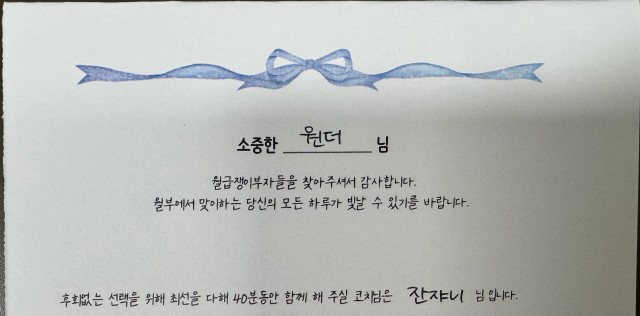 소중한 원더 님
월급쟁이부자들을 찾아주셔서 감사합니다.
월부에서 맞이하는 당신의 모든 하루가 빛날 수 있기를 바랍니다.
후회없는 선택을 위해 최선을 다해 40분동안 함께 해 주실 코치님은 잔쟈니 님 입니다.